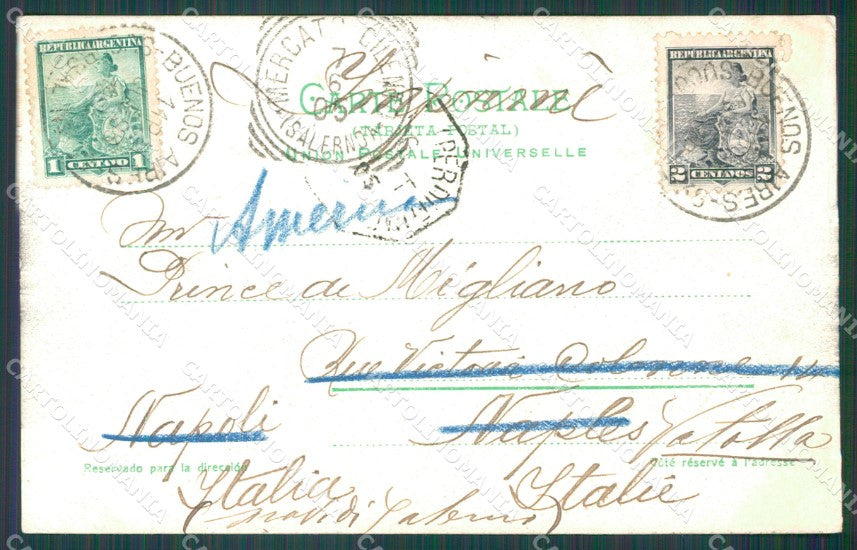 REPUBLICA ARGENTINA
1 CENTAVO 1
BUENOS AIRES
MERCATO CILENTO
(SALERNO)
7
6
05
Imprimé
CARTE POSTALE
(TARJETA POSTAL)
UNION POSTALE UNIVERSELLE
REPUBLICA ARGENTINA
2 CENTAVOS 2
BUENOS AIRES
America
Mr
Prince de Migliano
Rue Victoria Colonna
Napoli
Naples Vatolla
Reservado para la dirección
Côté réservé à l'adresse
Italia
Italie
di Salerno)
CARTOLINOMANIA